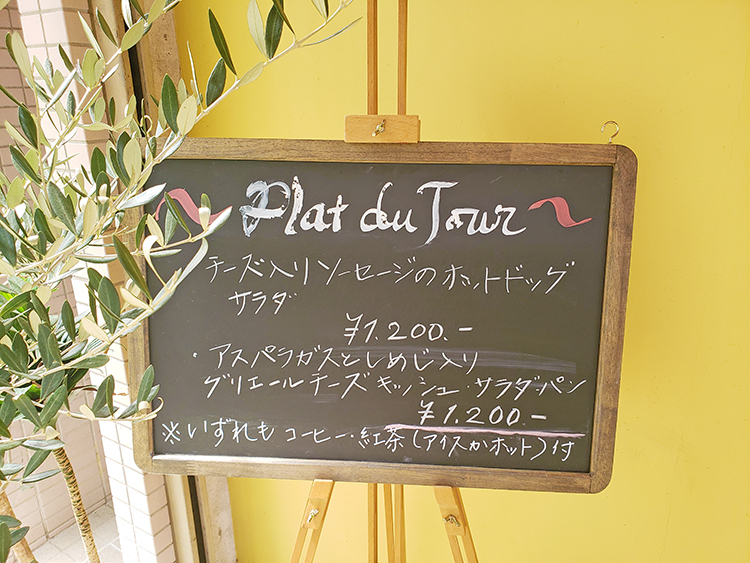 Plat du Jour
チーズ入りソーセージのホットドッグ
サラダ
¥1.200.-
・アスパラガスとしめじ入り
グリエールチーズキッシュ・サラダ・パン
¥1.200-
※いずれもコーヒー・紅茶(アイスかホット)付